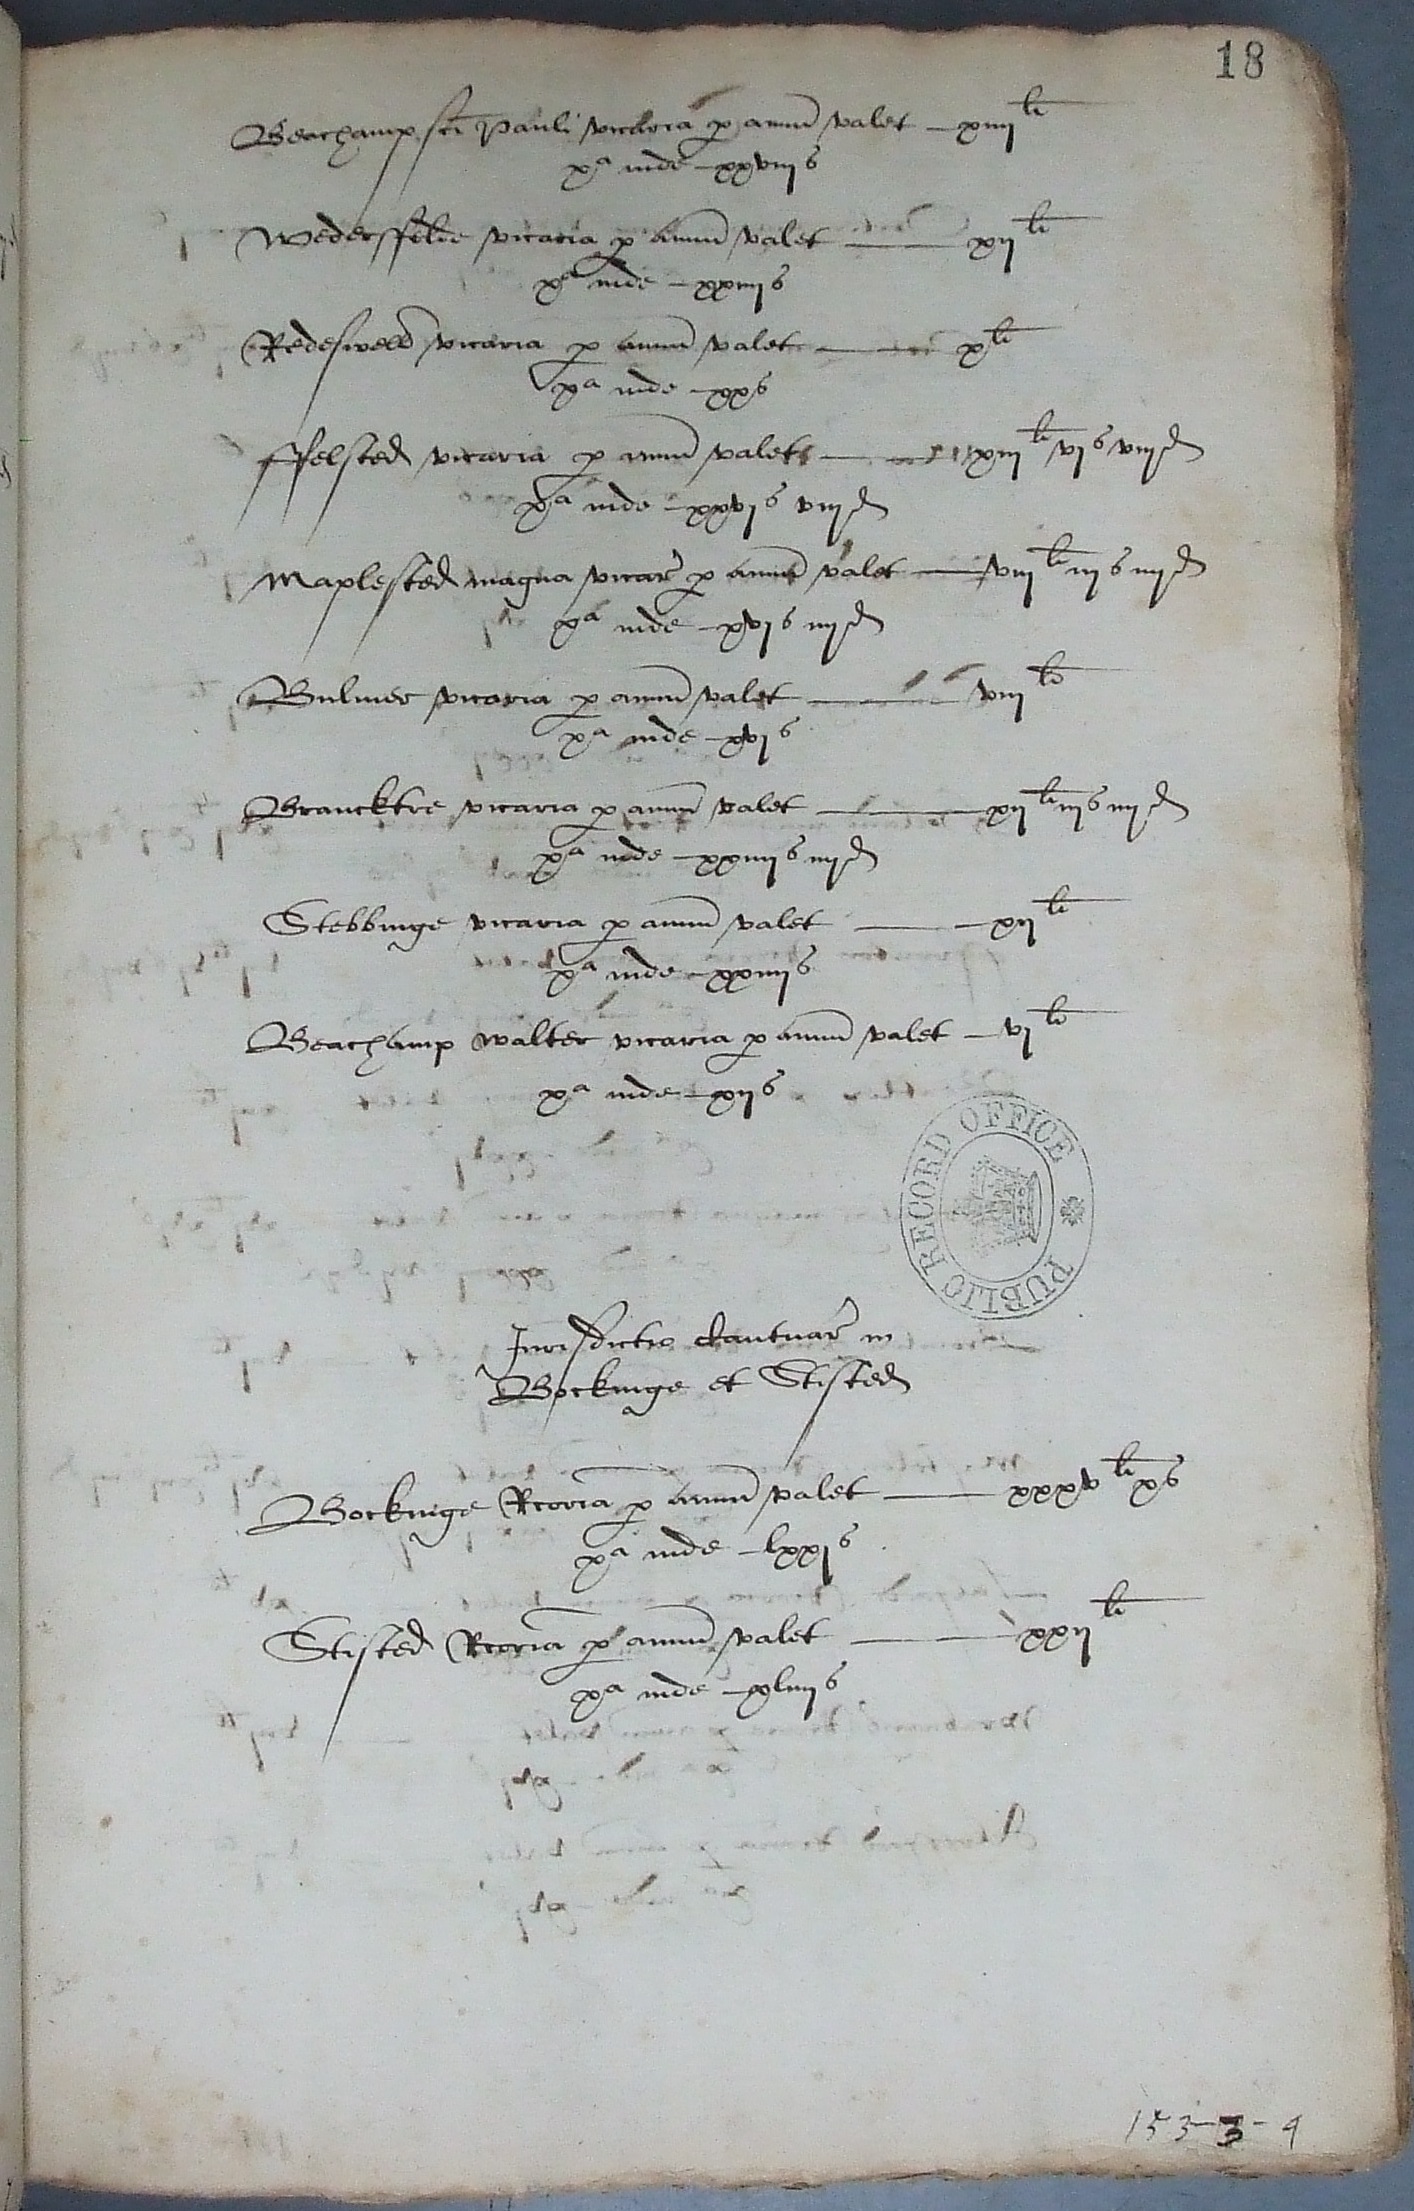 18
Beachamp sci Pauli vicaria p annu valet — xiiij li
xa inde — xxviij s
Wedersffelde vicaria p annu valet — xij li
xa inde — xxiiij s
Redeswell vicaria p annu valet — x li
xa inde — xx s
ffelsted vicaria p annu valet — xiij li vj s viij d
xa inde — xxvj s viij d
Maplested magna vicar p annu valet — viij li iij s iiij d
xa inde — xvj s iiij d
Bulmer vicaria p annu valet — viij li
xa inde — xvj s
Brancktre vicaria p annu valet — xij li iij s iiij d
xa inde — xxiiij s iiij d
Stebbinge vicaria p annu valet — xij li
xa inde — xxiiij s
Beachamp Walter vicaria p annu valet — vj li
xa inde — xij s
PUBLIC RECORD OFFICE
Jurisdictio Cantuar in
Bockinge et Stisted
Bockinge Rcoria p annu valet — xxxv li x s
xa inde — lxxj s
Stisted Rcoria p annu valet — xxij li
xa inde — xliiij s
153-3-4